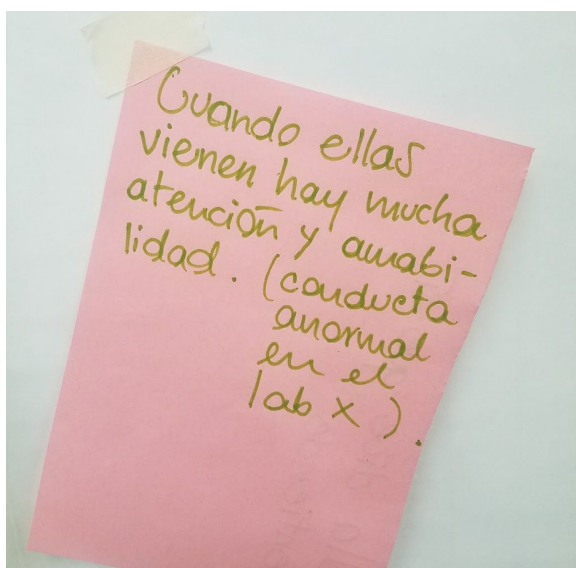 Cuando ellas
vienen hay mucha
atención y amabi-
lidad. (conducta
anormal
en el
lab x).